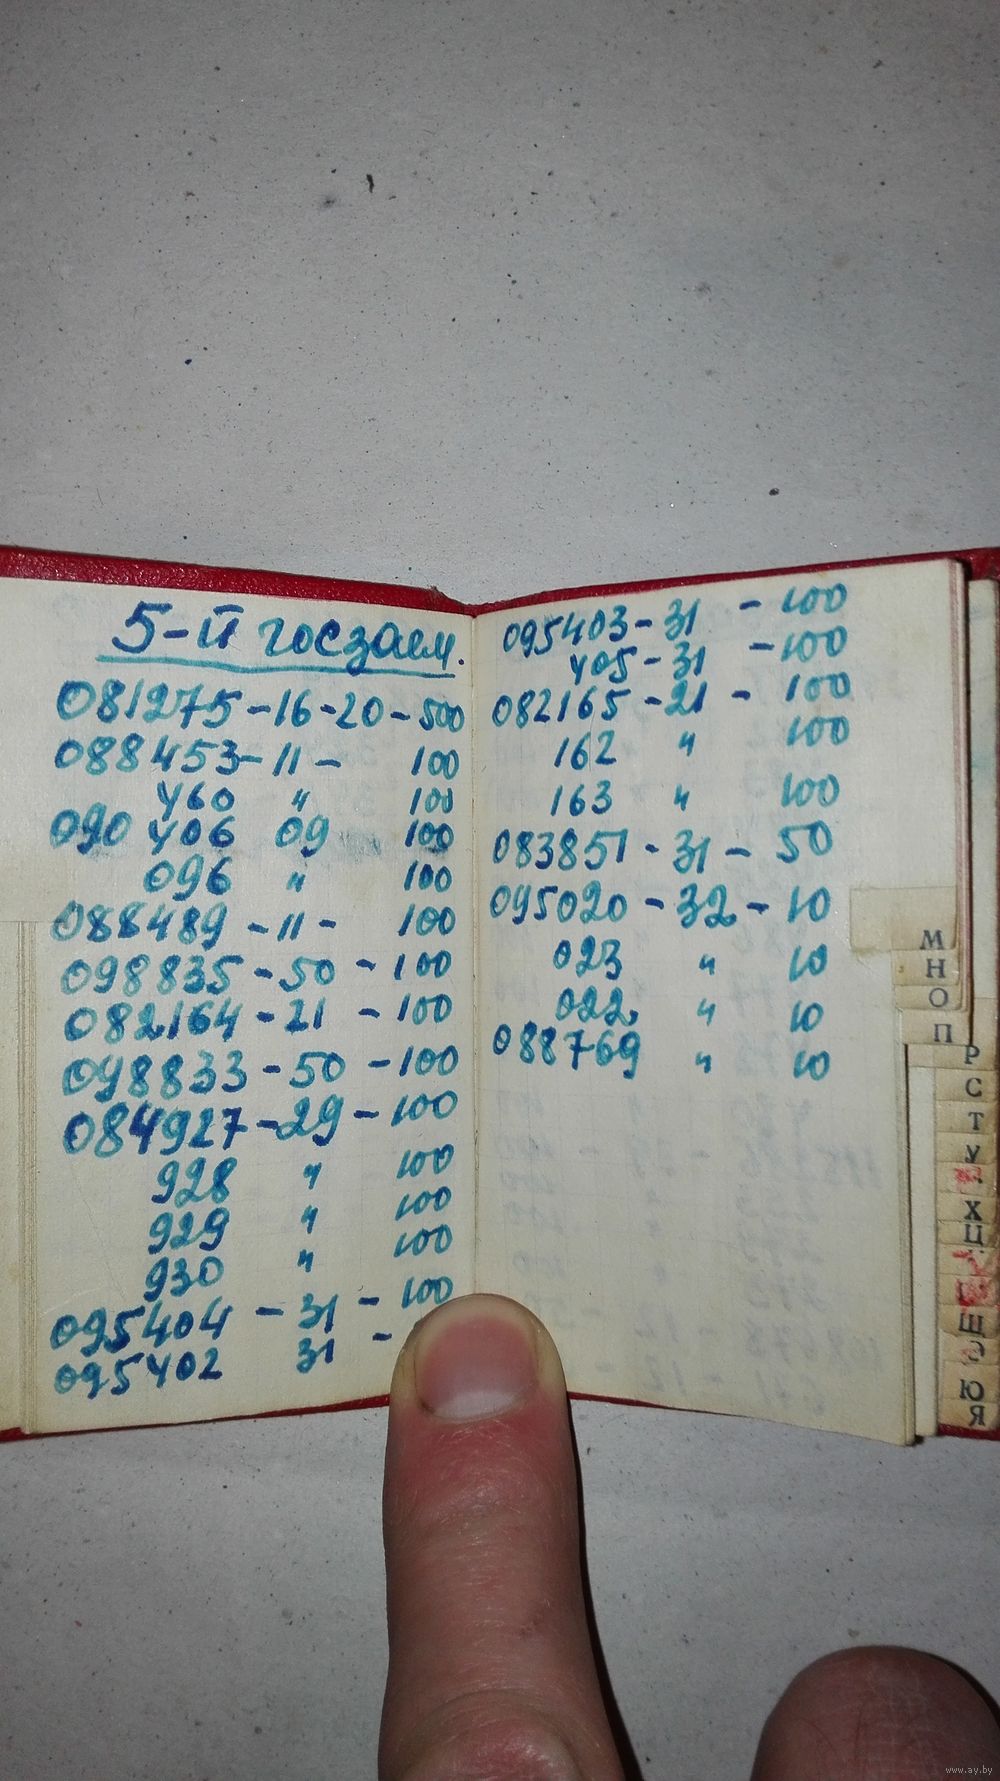 5-й госзаем.
081275-16-20-500
088453-11- 100
460 " 100
090 406 09 100
096 " 100
088489-11- 100
098835-50-100
082164-21-100
098833-50-100
084927-29-100
928 " 100
929 " 100
930 " 100
095404-31-100
095402 31 -
095403-31 -100
405-31 -100
082165-21-100
162 " 100
163 " 100
083851-31-50
095020-32-10
023 " 10
022 " 10
088769 " 10
М
Н
О
П
Р
С
Т
У
Х
Ц
Ш
Щ
Э
Ю
Я
www.ay.by